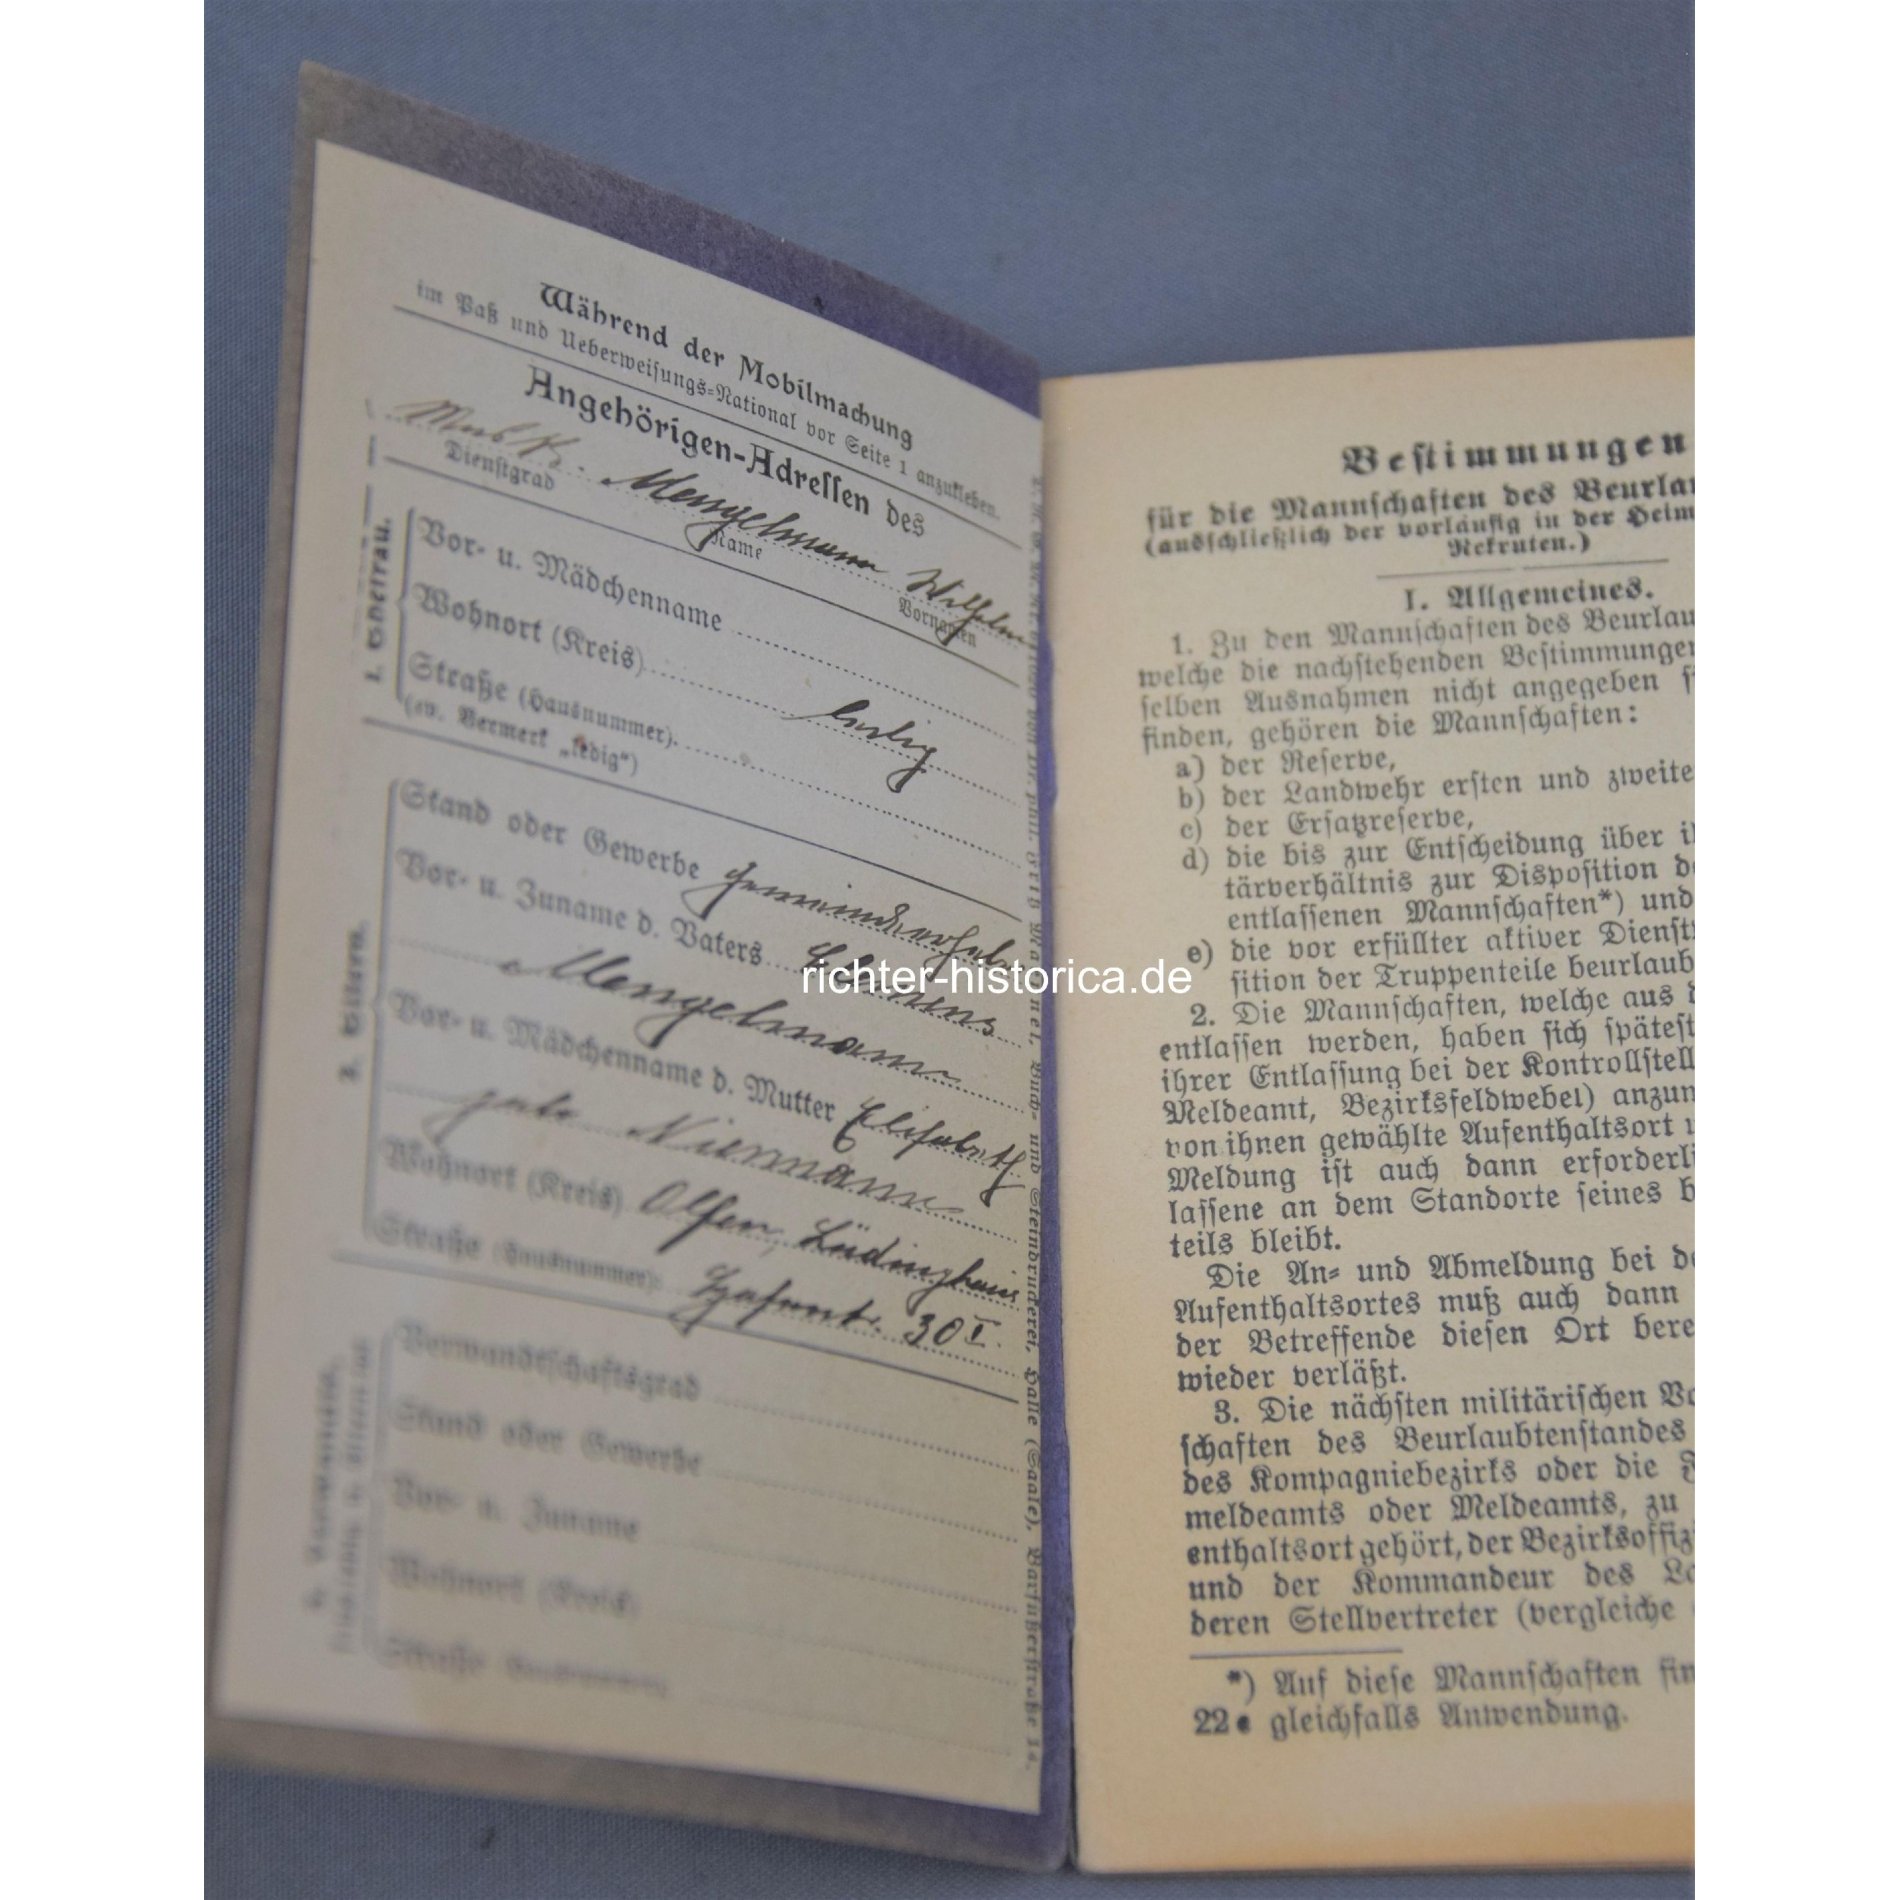 Während der Mobilmachung
im Paß und Ueberweisungs-National vor Seite 1 anzukleben.
Angehörigen-Adressen des
Mengelmann Wilhelm
Dienstgrad Name Vornamen
1. Ehefrau.
Vor- u. Mädchenname
Wohnort (Kreis)
ledig
Straße (Hausnummer)
(ev. Vermerk „ledig“)
2. Eltern.
Stand oder Gewerbe
Vor- u. Zuname d. Vaters Clemens
Mengelmann
Vor- u. Mädchenname d. Mutter Elisabeth
geb. Niemann
Wohnort (Kreis) Olfen, Lüdinghaus
Straße (Hausnummer) 30 I.
Verwandtschaftsgrad
Stand oder Gewerbe
Vor- u. Zuname
Wohnort (Kreis)
Straße
Buch- und Steindruckerei, Halle (Saale), Barfüßerstraße
richter-historica.de
Bestimmungen
für die Mannschaften des Beurlau
(ausschließlich der vorläufig in der Heim
Rekruten.)
I. Allgemeines.
1. Zu den Mannschaften des Beurlau
welche die nachstehenden Bestimmungen
selben Ausnahmen nicht angegeben
finden, gehören die Mannschaften:
a) der Reserve,
b) der Landwehr ersten und zweite
c) der Ersatzreserve,
d) die bis zur Entscheidung über
tärverhältnis zur Disposition
entlassenen Mannschaften*) und
e) die vor erfüllter aktiver Dienst
sition der Truppenteile beurlaub
2. Die Mannschaften, welche aus
entlassen werden, haben sich spätest
ihrer Entlassung bei der Kontrollstell
Meldeamt, Bezirksfeldwebel) anzum
von ihnen gewählte Aufenthaltsort
Meldung ist auch dann erforderli
lassene an dem Standorte seines
teils bleibt.
Die An- und Abmeldung bei
Aufenthaltsortes muß auch dann
der Betreffende diesen Ort bere
wieder verläßt.
3. Die nächsten militärischen Vo
schaften des Beurlaubtenstandes
des Kompagniebezirks oder die
meldeamts oder Meldeamts, zu
enthaltsort gehört, der Bezirksoffizi
und der Kommandeur des
deren Stellvertreter (vergleiche
*) Auf diese Mannschaften fin
22 e gleichfalls Anwendung.